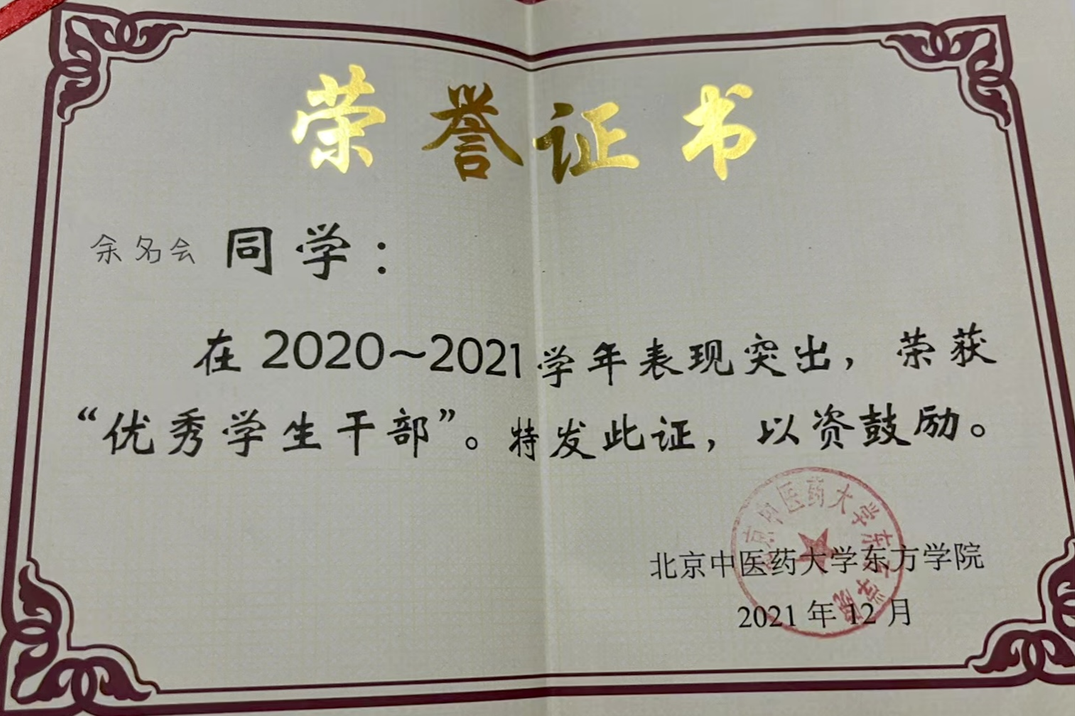 荣誉证书
余名会 同学：
在2020~2021学年表现突出，荣获
“优秀学生干部”。特发此证，以资鼓励。
北京中医药大学东方学院
北京中医药大学东方学院
2021年12月